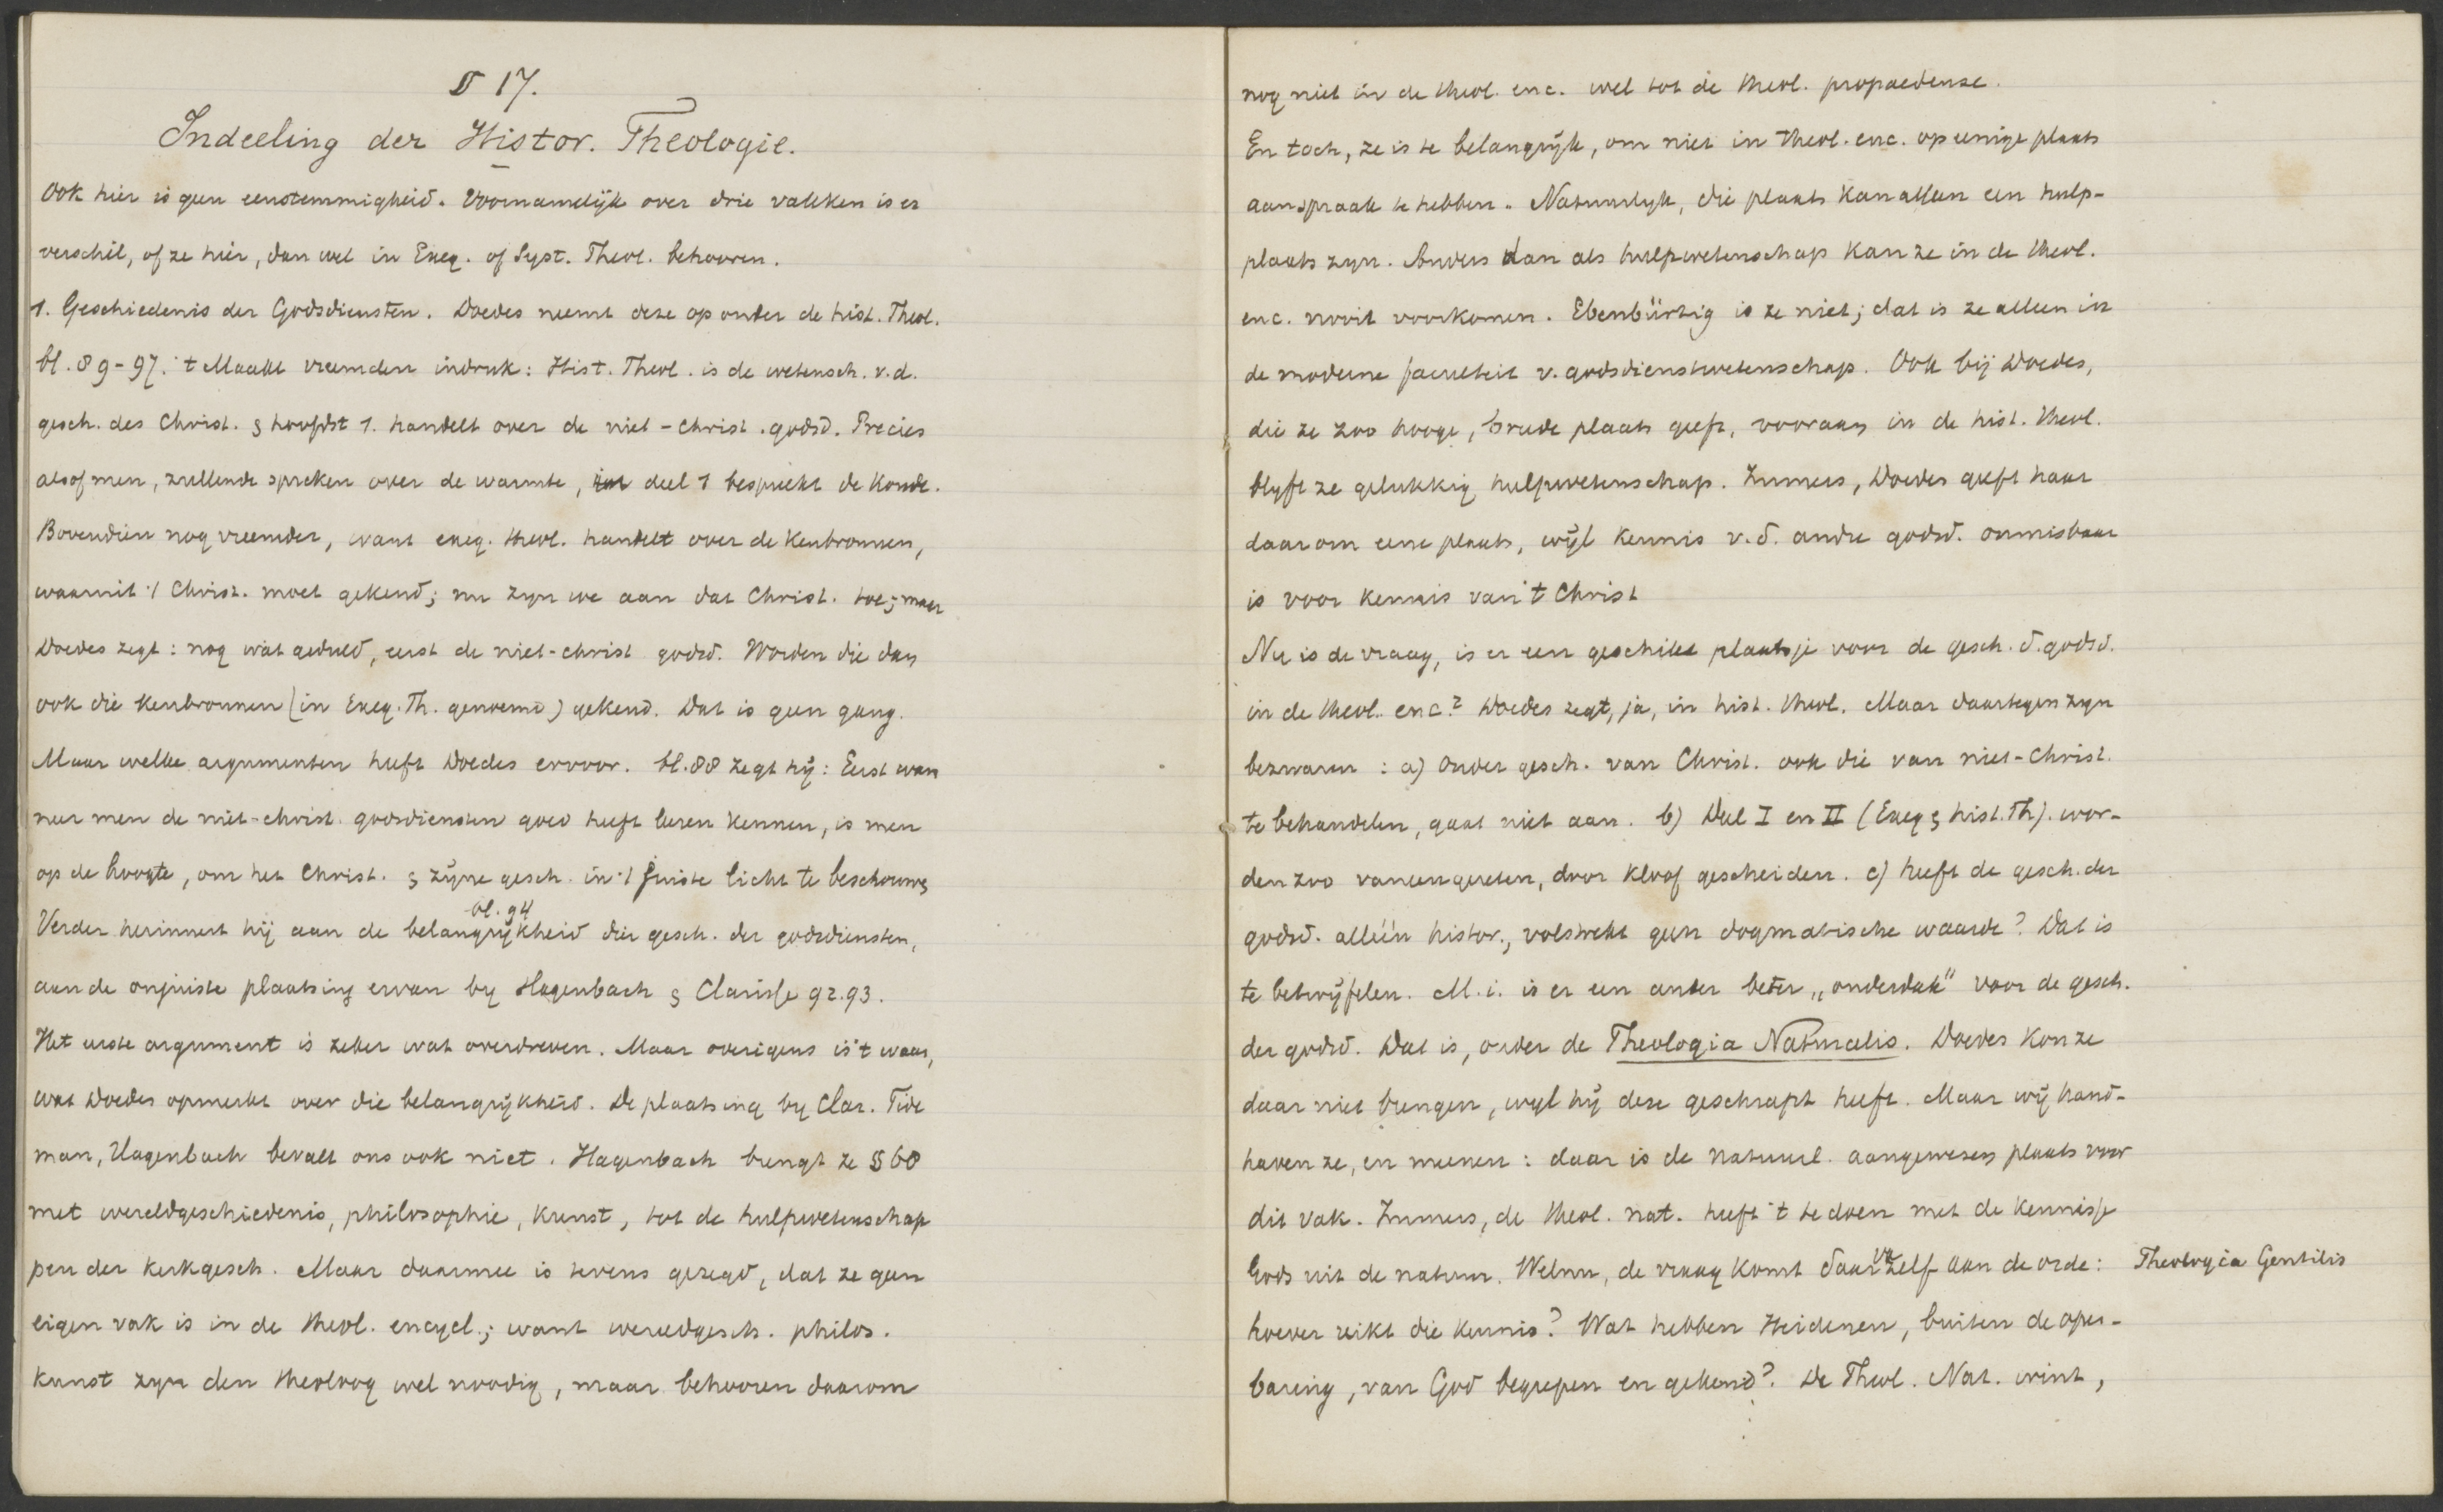 § 17.
Indeeling der Histor. Theologie.
Ook hier is geen eenstemmigheid. Voornamelijk over drie vakken is er
verschil, of ze hier, dan wel in Exeg. of Syst. Theol. behooren.
1. Geschiedenis der Godsdiensten. Doedes neemt deze op onder de hist. Theol.
bl. 89-97. 't Maakt vreemden indruk: Hist. Theol. is de wetensch. v.d.
gesch. des Christ. & hoofdst 1. handelt over de niet-christ. godsd. Precies
alsof men, zullende spreken over de warmte, in deel 1 bespreekt de koude.
Bovendien nog vreemder, want exeg. theol. handelt over de kenbronnen,
waaruit 't Christ. moet gekend; nu zyn we aan dat Christ. toe; maar
Doedes zegt: nog wat geduld, eerst de niet-christ godsd. Worden die dan
ook die kenbronnen (in Exeg. Th. genoemd) gekend. Dat is geen gang.
Maar welke argumenten heeft Doedes ervoor. bl. 88 zegt hij: Eerst wan
neer men de niet-christ. godsdiensten goed heeft leeren kennen, is men
op de hoogte, om het Christ. & zijne gesch. in 't juiste licht te beschouwen
bl. 94
Verder herinnert hij aan de belangrijkheid dier gesch. der godsdiensten,
aan de onjuiste plaatsing ervan by Hagenbach & Clarisse 92.93.
Het eerste argument is zeker wat overdreven. Maar overigens is 't waar,
wat Doedes opmerkt over die belangrijkheid. De plaatsing by Clar. Tide
man, Hagenbach bevalt ons ook niet. Hagenbach brengt ze § 60
met wereldgeschiedenis, philosophie, kunst, tot de hulpwetenschap
pen der kerkgesch. Maar daarmee is tevens gezegd, dat ze geen
eigen vak is in de theol. encycl.; want wereldgesch. philos.
kunst zyn den theoloog wel noodig, maar behooren daarom
nog niet in de theol. enc. wel tot de theol. propaedeuse.
En toch, ze is te belangrijk, om niet in theol. enc. op eenige plaats
aanspraak te hebben. Natuurlyk, die plaats kan alleen een hulp-
plaats zyn. Anders dan als hulpwetenschap kan ze in de theol.
enc. nooit voorkomen. Ebenbürtig is ze niet; dat is ze alleen in
de moderne faculteit v. godsdienstwetenschap. Ook bij Doedes,
die ze zoo hooge, breede plaats geeft, vooraan in de hist. theol.
blyft ze gelukkig hulpwetenschap. Immers, Doedes geeft haar
daarom eene plaats, wijl kennis v.d. andre godsd. onmisbaar
is voor kennis van 't Christ
Nu is de vraag, is er een geschikt plaatsje voor de gesch. d. godsd.
in de theol. enc.? Doedes zegt, ja, in hist. theol. Maar daartegen zyn
bezwaren: a) Onder gesch. van Christ. ook die van niet-Christ.
te behandelen, gaat niet aan. b) Deel I en II (Exeg & hist. Th). wor-
den zoo vaneengereten, door kloof gescheiden. c) heeft de gesch. der
godsd. alléén histor., volstrekt geen dogmatische waarde? Dat is
te betwijfelen. M.i. is er een ander beter „onderdak" voor de gesch.
der godsd. Dat is, onder de Theologia Naturalis. Doedes kon ze
daar niet brengen, wyl hij deze geschrapt heeft. Maar wij hand-
haven ze, en meenen: daar is de natuurl. aangewezen plaats voor
dit vak. Immers, de theol. nat. heeft 't te doen met de kennisse
Gods uit de natuur. Welnu, de vraag komt daar vz zelf aan de orde: Theologia Gentilis
hoever reikt die kennis? Wat hebben Heidenen, buiten de open-
baring, van God begrepen en gekend? De Theol. Nat. wint,